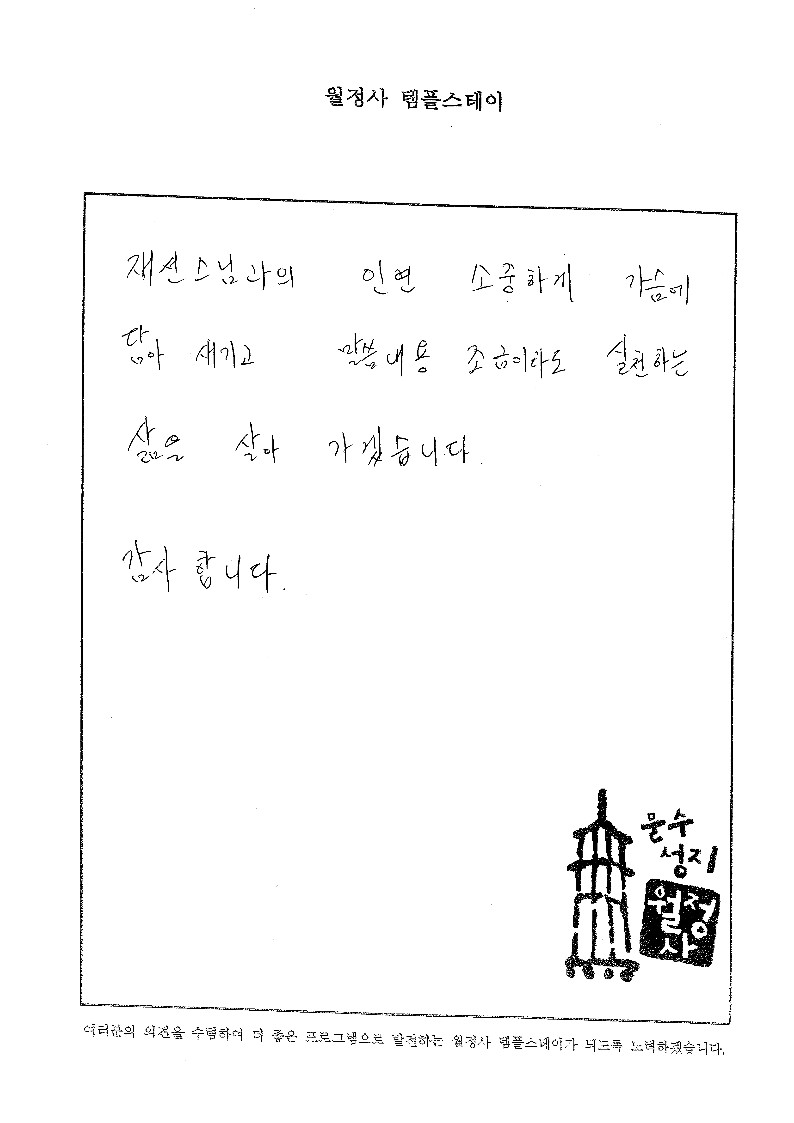 월정사 템플스테이
재선스님과의 인연 소중하게 가슴에
담아 새기고 말씀내용 조금이라도 실천하는
삶을 살아 가겠습니다.
감사 합니다.
문수
성지
월정
사
여러분의 의견을 수렴하여 더 좋은 프로그램으로 발전하는 월정사 템플스테이가 되도록 노력하겠습니다.